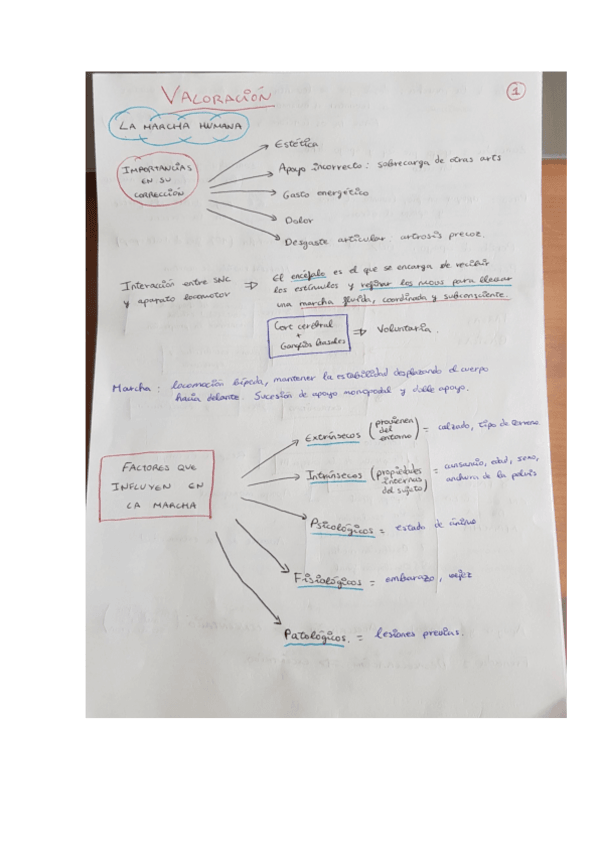 VALORACIÓN
1
LA MARCHA HUMANA
IMPORTANCIAS
EN SU
CORRECCIÓN
Estética
Apoyo incorrecto: sobrecarga de otras arts
Gasto energético
Dolor
Desgaste articular. artrosis precoz.
Interacción entre SNC
y aparato locomotor
⇒
El encéfalo es el que se encarga de recibir
los estímulos y
para llevar
una marcha fluida, coordinada y subconsciente.
Cort cerebral
+
Ganglios basales
⇒ Voluntaria.
Marcha: locomoción bípeda, mantener la estabilidad desplazando el cuerpo
hacia delante. Sucesión de apoyo monopodal y doble apoyo.
FACTORES QUE
INFLUYEN EN
LA MARCHA
Extrínsecos (provienen del entorno) = calzado, tipo de terreno
Intrínsecos (propiedades internas del sujeto) = cansancio, edad, sexo,
anchura de la pelvis
Psicológicos = estado de ánimo
Fisiológicos = embarazo, vejez
Patológicos. = lesiones previas.